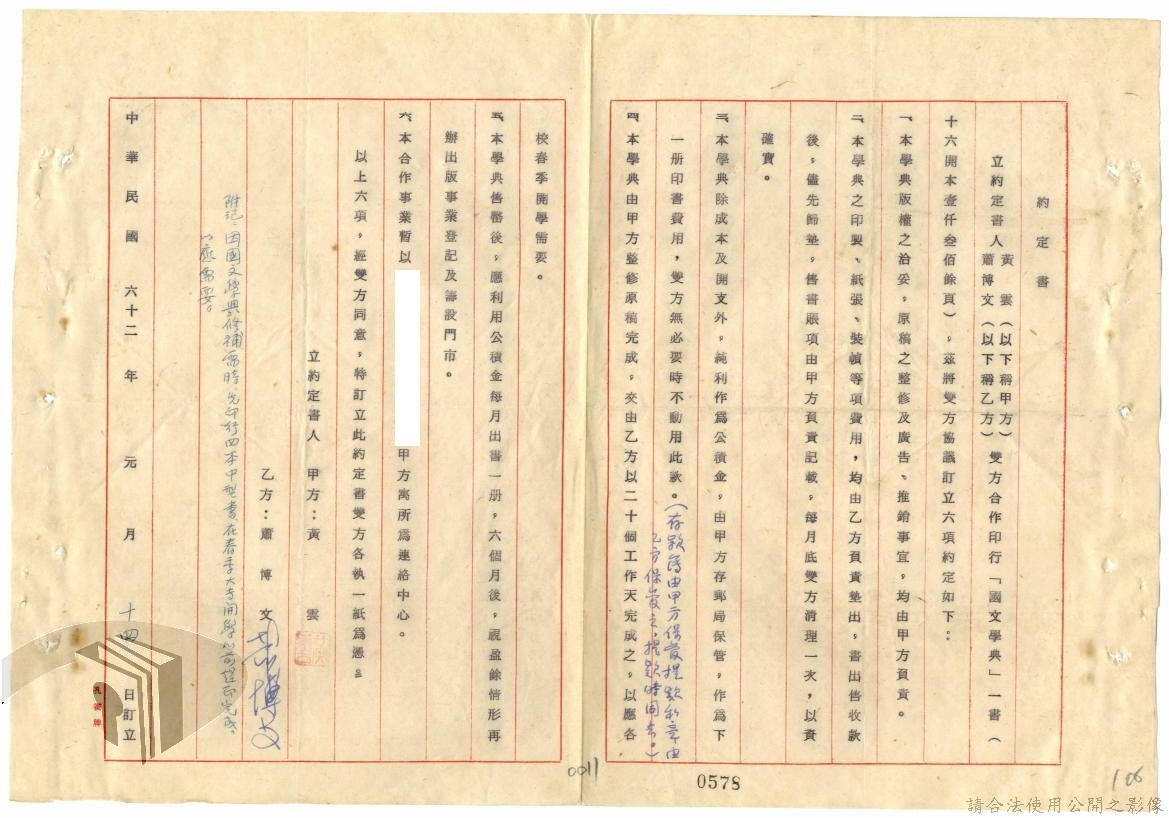 約定書
立約定書人黃　雲（以下稱甲方）蕭博文（以下稱乙方）雙方合作印行「國文學典」一書（
十六開本壹仟叁佰餘頁），茲將雙方協議訂立六項約定如下：
一、本學典版權之洽妥，原稿之整修及廣告、推銷事宜，均由甲方負責。
二、本學典之印製、紙張、裝幀等項費用，均由乙方負責墊出，書出售收款
後，儘先歸墊，售書賬項由甲方負責記載，每月底雙方清理一次，以資
確實。
三、本學典除成本及開支外，純利作為公積金，由甲方存郵局保管，作為下
一册印書費用，雙方無必要時不動用此款。（存款簿由甲方保管提款私章由
乙方保管之，提款時同去。）
四、本學典由甲方整修原稿完成，交由乙方以二十個工作天完成之，以應各
校春季開學需要。
五、本學典售罄後，應利用公積金每月出書一册，六個月後，視盈餘情形再
辦出版事業登記及籌設門市。
六、本合作事業暫以
甲方寓所為連絡中心。
以上六項，經雙方同意，特訂立此約定書雙方各執一紙為憑。
立約定書人　甲方：黃　雲
乙方：蕭博文
附記：因國文學典修補需時先印行四本中型書在春季大專開學以前趕印完成，
以應需要。
中華民國六十二年元月十四日訂立
孔雀牌
0011
0578
106
請合法使用公開之影像